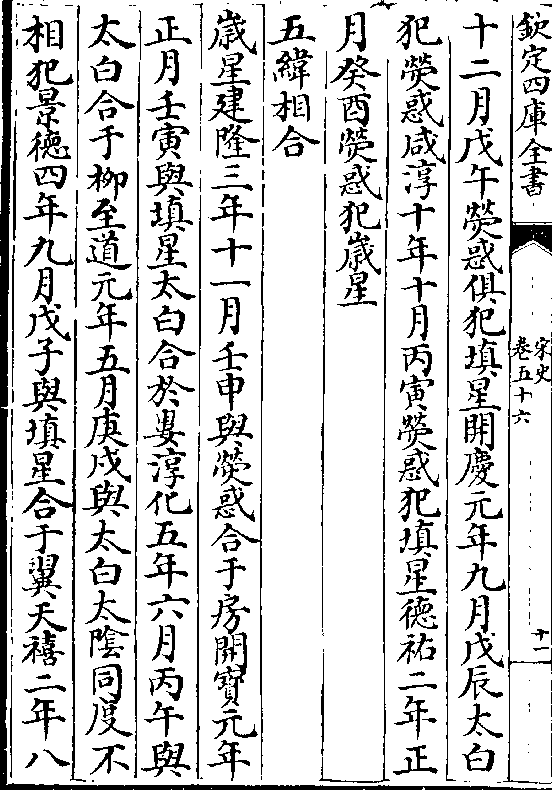 欽定四庫全書
宋史
卷五十六
十二
十二月戊午熒惑俱犯填星開慶元年九月戊辰太白
犯熒惑咸淳十年十月丙寅熒惑犯填星德祐二年正
月癸酉熒惑犯歲星
五緯相合
歲星建隆三年十一月壬申與熒惑合于房開寶元年
正月壬寅與填星太白合於婁淳化五年六月丙午與
太白合于柳至道元年五月庚戍與太白太陰同度不
相犯景德四年九月戊子與填星合于翼天禧二年八